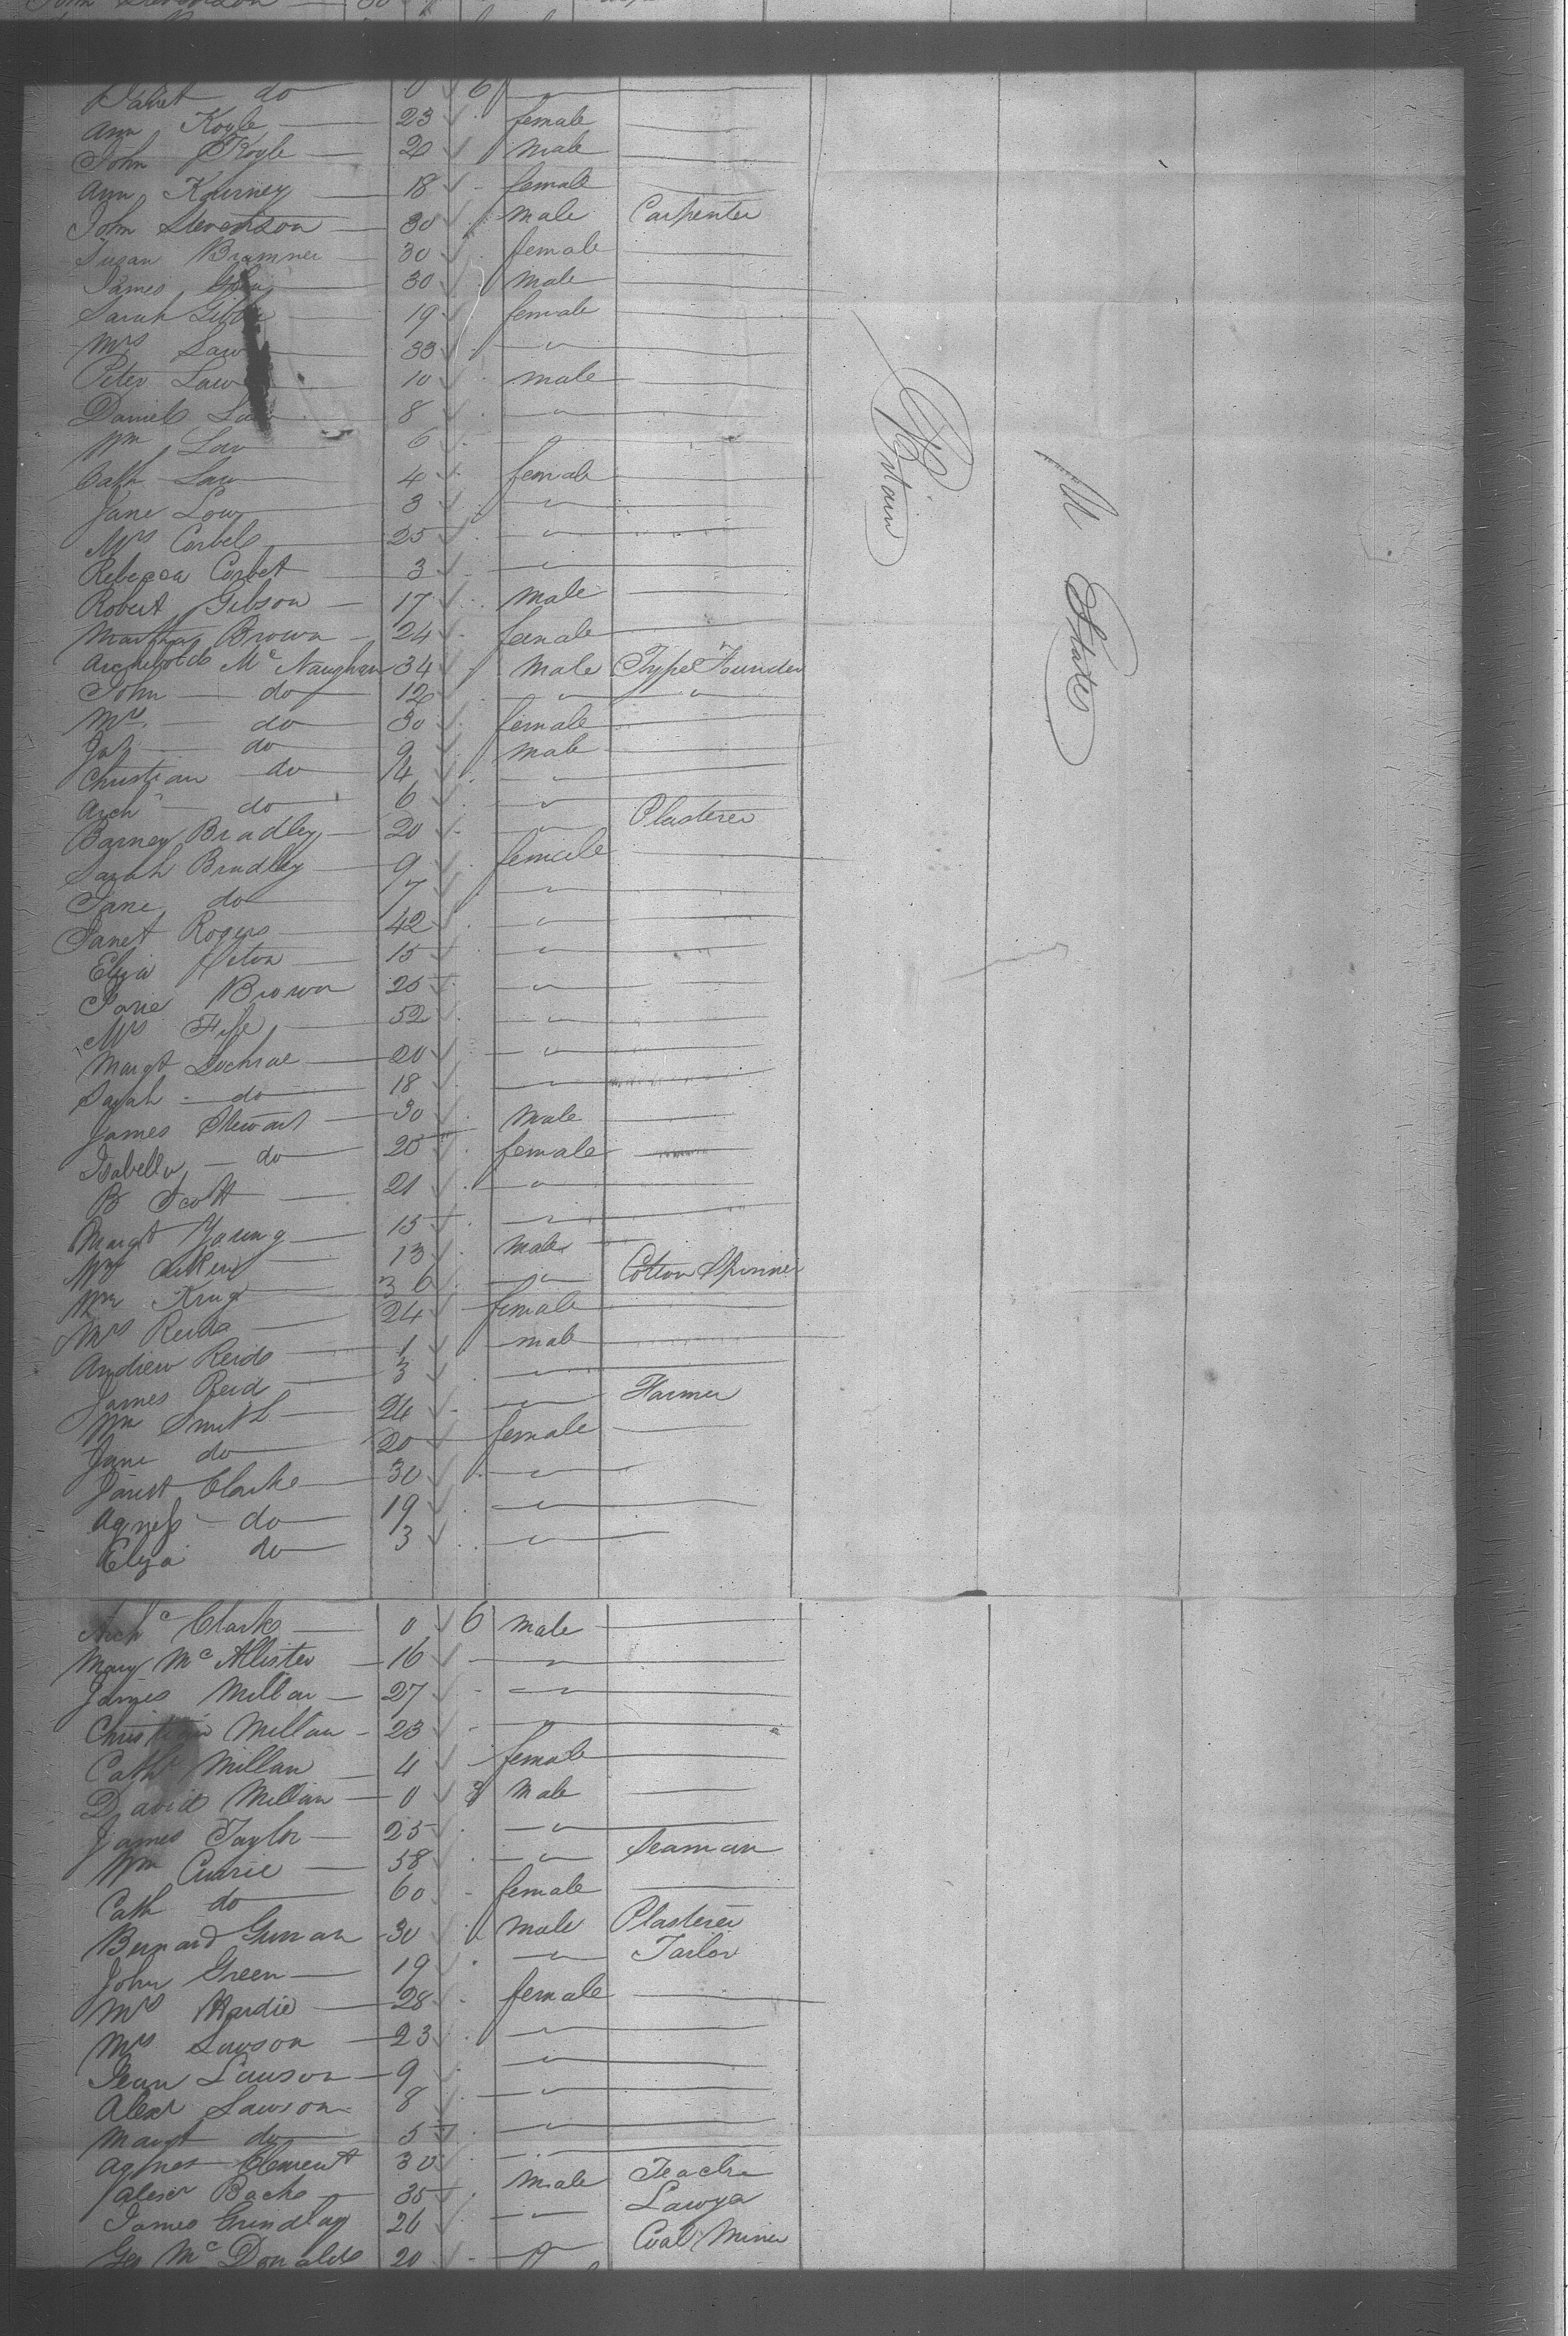 Janet do 0 6
Ann Kogle 23 female
John Kogle 20 male
Ann Kourney 18 female
John Stevenson 30 male Carpenter
Susan Bramner 30 female
James 30 male
Sarah 19 female
Mrs Law 33 "
Peter Law 10 male
Daniel Law 8 "
Wm Law 6
Cath Law 4 female
Jane Low 3 "
Mrs Corbet 25 "
Rebecca Corbet 3 "
Robert Gibson 17 male
Martha Brown 24 female
Archibold Mc Naughan 34 male Type Founder
John do 12 " "
Mrs do 30 female
Jas do 9 male
Christian do 4 "
Arch do 6 "
Barney Bradley 20 " Plasterer
Sarah Bradley 9 female
Jane do 7 "
Janet Rogers 42 "
Eliza 15 "
Jane Brown 25 "
Mrs Fife 52 "
Margt Lochrae 20 "
Sarah do 18 "
James Stewart 30 male
Isabella do 20 female
B Scott 21 "
Margt Young 15 "
Wm Aiken 13 male
Wm King 36 " Cotton Spinner
Mrs Reid 24 female
Andrew Reid 1 male
James Reid 3 "
Wm Smith 24 " Farmer
Jane do 20 female
Janet Clarke 30 "
Agness do 19 "
Eliza do 3 "
Gt Britain
U States
Archd Clark 0 6 male
Mary Mc Allister 16 "
James Millan 27 "
Christian Millan 23 "
Cath Millan 4 female
David Millan 0 3 male
James Taylor 25 "
Wm Currie 58 " Seaman
Cath do 60 female
Bernard Gunan 30 male Plasterer
John Green 19 " Tailor
Mrs Hardie 28 female
Mrs Lawson 23 "
Jean Lawson 9 "
Alexr Lawson 8 "
Margt do 5 "
Agnes Clement 30 "
Alexr 35 male Teacher
James Grindlay 26 " Lawyer
Geo Mc Donald 20 " Coal Miner